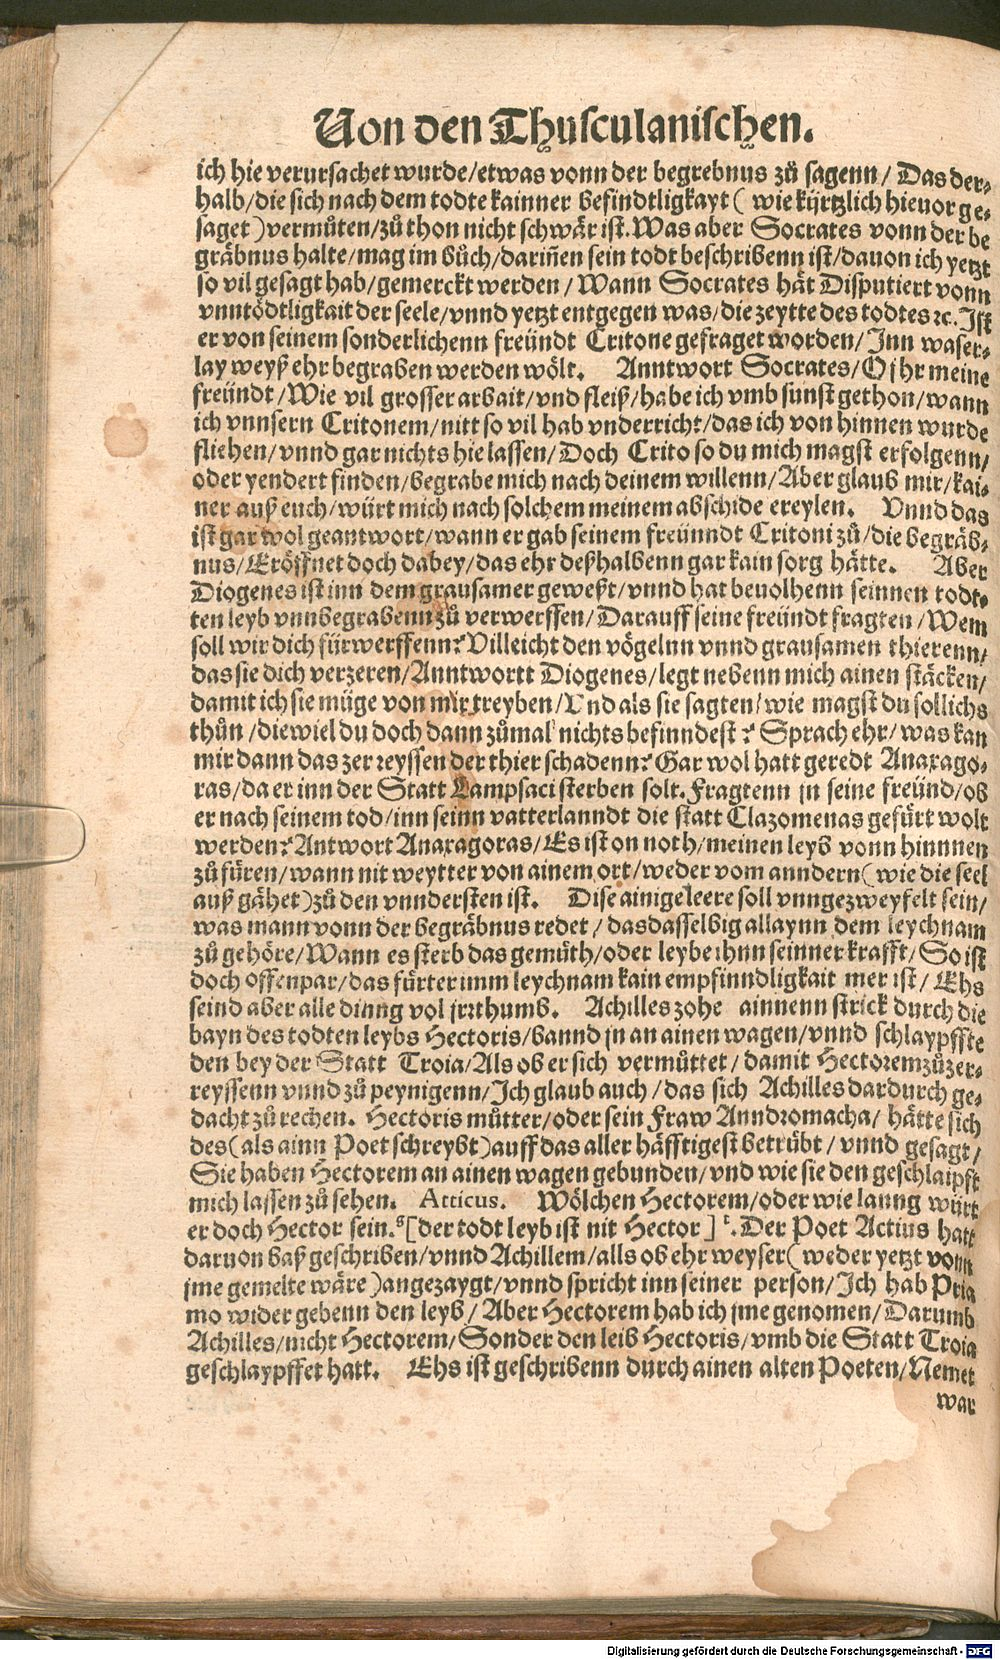 Von den Thusculanischen.
ich hie verursachet wurde/etwas vonn der begrebnus zů sagenn/ Das der⸗
halb/die sich nach dem todte kainner befindtligkayt ( wie kürtzlich hieuor ge⸗
saget )vermůten/zů thon nicht schwär ist. Was aber Socrates vonn der be
gräbnus halte/mag im bůch/dariñen sein todt beschribenn ist/dauon ich yetzt
so vil gesagt hab/gemerckt werden/ Wann Socrates hät Disputiert vonn
vnntödtligkait der seele/vnnd yetzt entgegen was/die zeytte des todtes ꝛc. Ist
er von seinem sonderlichenn freündt Critone gefraget worden/ Inn waser⸗
lay weyß ehr begraben werden wölt. Anntwort Socrates/O jhr meine
freündt/Wie vil grosser arbait/vnd fleiß/habe ich vmb sunst gethon/wann
ich vnnsern Critonem/nitt so vil hab vnderricht/das ich von hinnen wurde
fliehen/vnnd gar nichts hie lassen/Doch Crito so du mich magst erfolgenn/
oder yendert finden/begrabe mich nach deinem willenn/Aber glaub mir/kai⸗
ner auß euch/würt mich nach solchem meinem abschide ereylen. Vnnd das
ist gar wol geantwort/wann er gab seinem freünndt Critoni zů/die begräb⸗
nus/Eröffnet doch dabey/das ehr deßhalbenn gar kain sorg hätte. Aber
Diogenes ist inn dem grausamer geweßt/vnnd hat beuolhenn seinnen todt⸗
ten leyb vnnbegrabenn zů verwerffen/Darauff seine freündt fragten/Wem
soll wir dich fürwerffenn? Villeicht den vögelnn vnnd grausamen thierenn/
das sie dich verzeren/Anntwortt Diogenes/legt nebenn mich ainen stäcken/
damit ich sie müge von mir treyben/Vnd als sie sagten/wie magst du sollichs
thůn/diewiel du doch dann zůmal nichts befinndest? Sprach ehr/was kan
mir dann das zerreyssen der thier schadenn? Gar wol hatt geredt Anaxago⸗
ras/da er inn der Statt Lampsaci sterben solt. Fragtenn jn seine freünd/ob
er nach seinem tod/inn seinn vatterlanndt die statt Clazomenas gefürt wolt
werden? Antwort Anaxagoras/Es ist on noth/meinen leyb vonn hinnnen
zů füren/wann nit weytter von ainem ort/weder vom anndern( wie die seel
auß gähet )zů den vnndersten ist. Dise ainige leere soll vnngezweyfelt sein/
was mann vonn der begräbnus redet/ das dasselbig allaynn dem leychnam
zů gehöre/Wann es sterb das gemüth/oder leybe ihnn seinner krafft/So ist
doch offenpar/das fürter imm leychnam kain empfinndligkait mer ist/ Ehs
seind aber alle dinng vol jrrthumb. Achilles zohe ainnenn strick durch die
bayn des todten leybs Hectoris/bannd jn an ainen wagen/vnnd schlaypffte
den bey der Statt Troia/Als ob er sich vermůttet/ damit Hectorem zů zer⸗
reyssenn vnnd zů peynigenn/Ich glaub auch/das sich Achilles dardurch ge⸗
dacht zů rechen. Hectoris můtter/oder sein Fraw Anndromacha/ hätte sich
des( als ainn Poet schreybt )auff das aller häfftigest betrübt/ vnnd gesagt/
Sie haben Hectorem an ainen wagen gebunden/vnd wie sie den geschlaipft
mich lassen zů sehen. Atticus. Wölchen Hectorem/oder wie lanng würt
er doch Hector sein. s[der todt leyb ist nit Hector ] t. Der Poet Actius hatt
daruon baß geschriben/vnnd Achillem/alls ob ehr weyser( weder yetzt vonn
jme gemelte wäre )angezaygt/vnnd spricht inn seiner person/Ich hab Pria
mo wider gebenn den leyb/ Aber Hectorem hab ich jme genomen/Darumb
Achilles/nicht Hectorem/Sonder den leib Hectoris/vmb die Statt Troia
geschlaypffet hatt. Ehs ist geschribenn durch ainen alten Poeten/Nemet
war
Digitalisierung gefördert durch die Deutsche Forschungsgemeinschaft - DFG